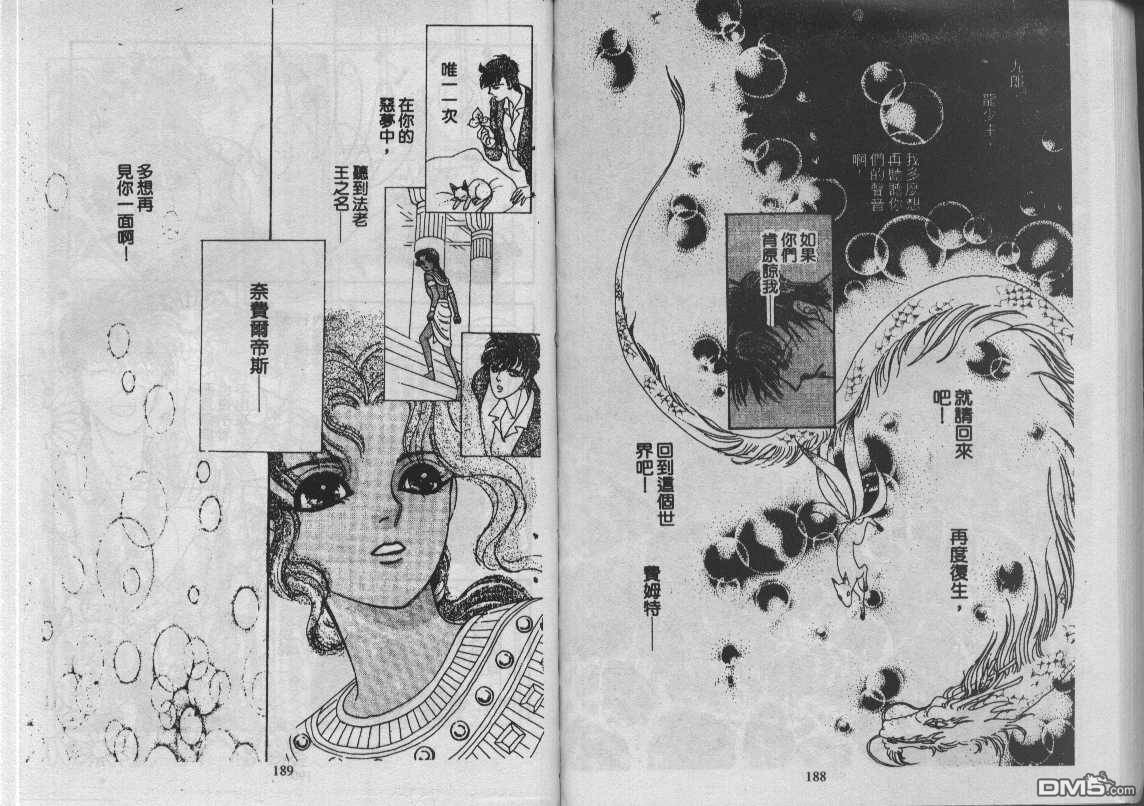 九郎、
龍少主
我多麼想
再聽聽你
們的聲音
啊！
如果
你們
肯原諒我──
就請回來
吧！
再度復生，
回到這個世
界吧！
費姆特──
188
唯一一次
在你的
惡夢中，
聽到法老
王之名──
奈費爾帝斯──
多想再
見你一面啊！
189
DM5.com